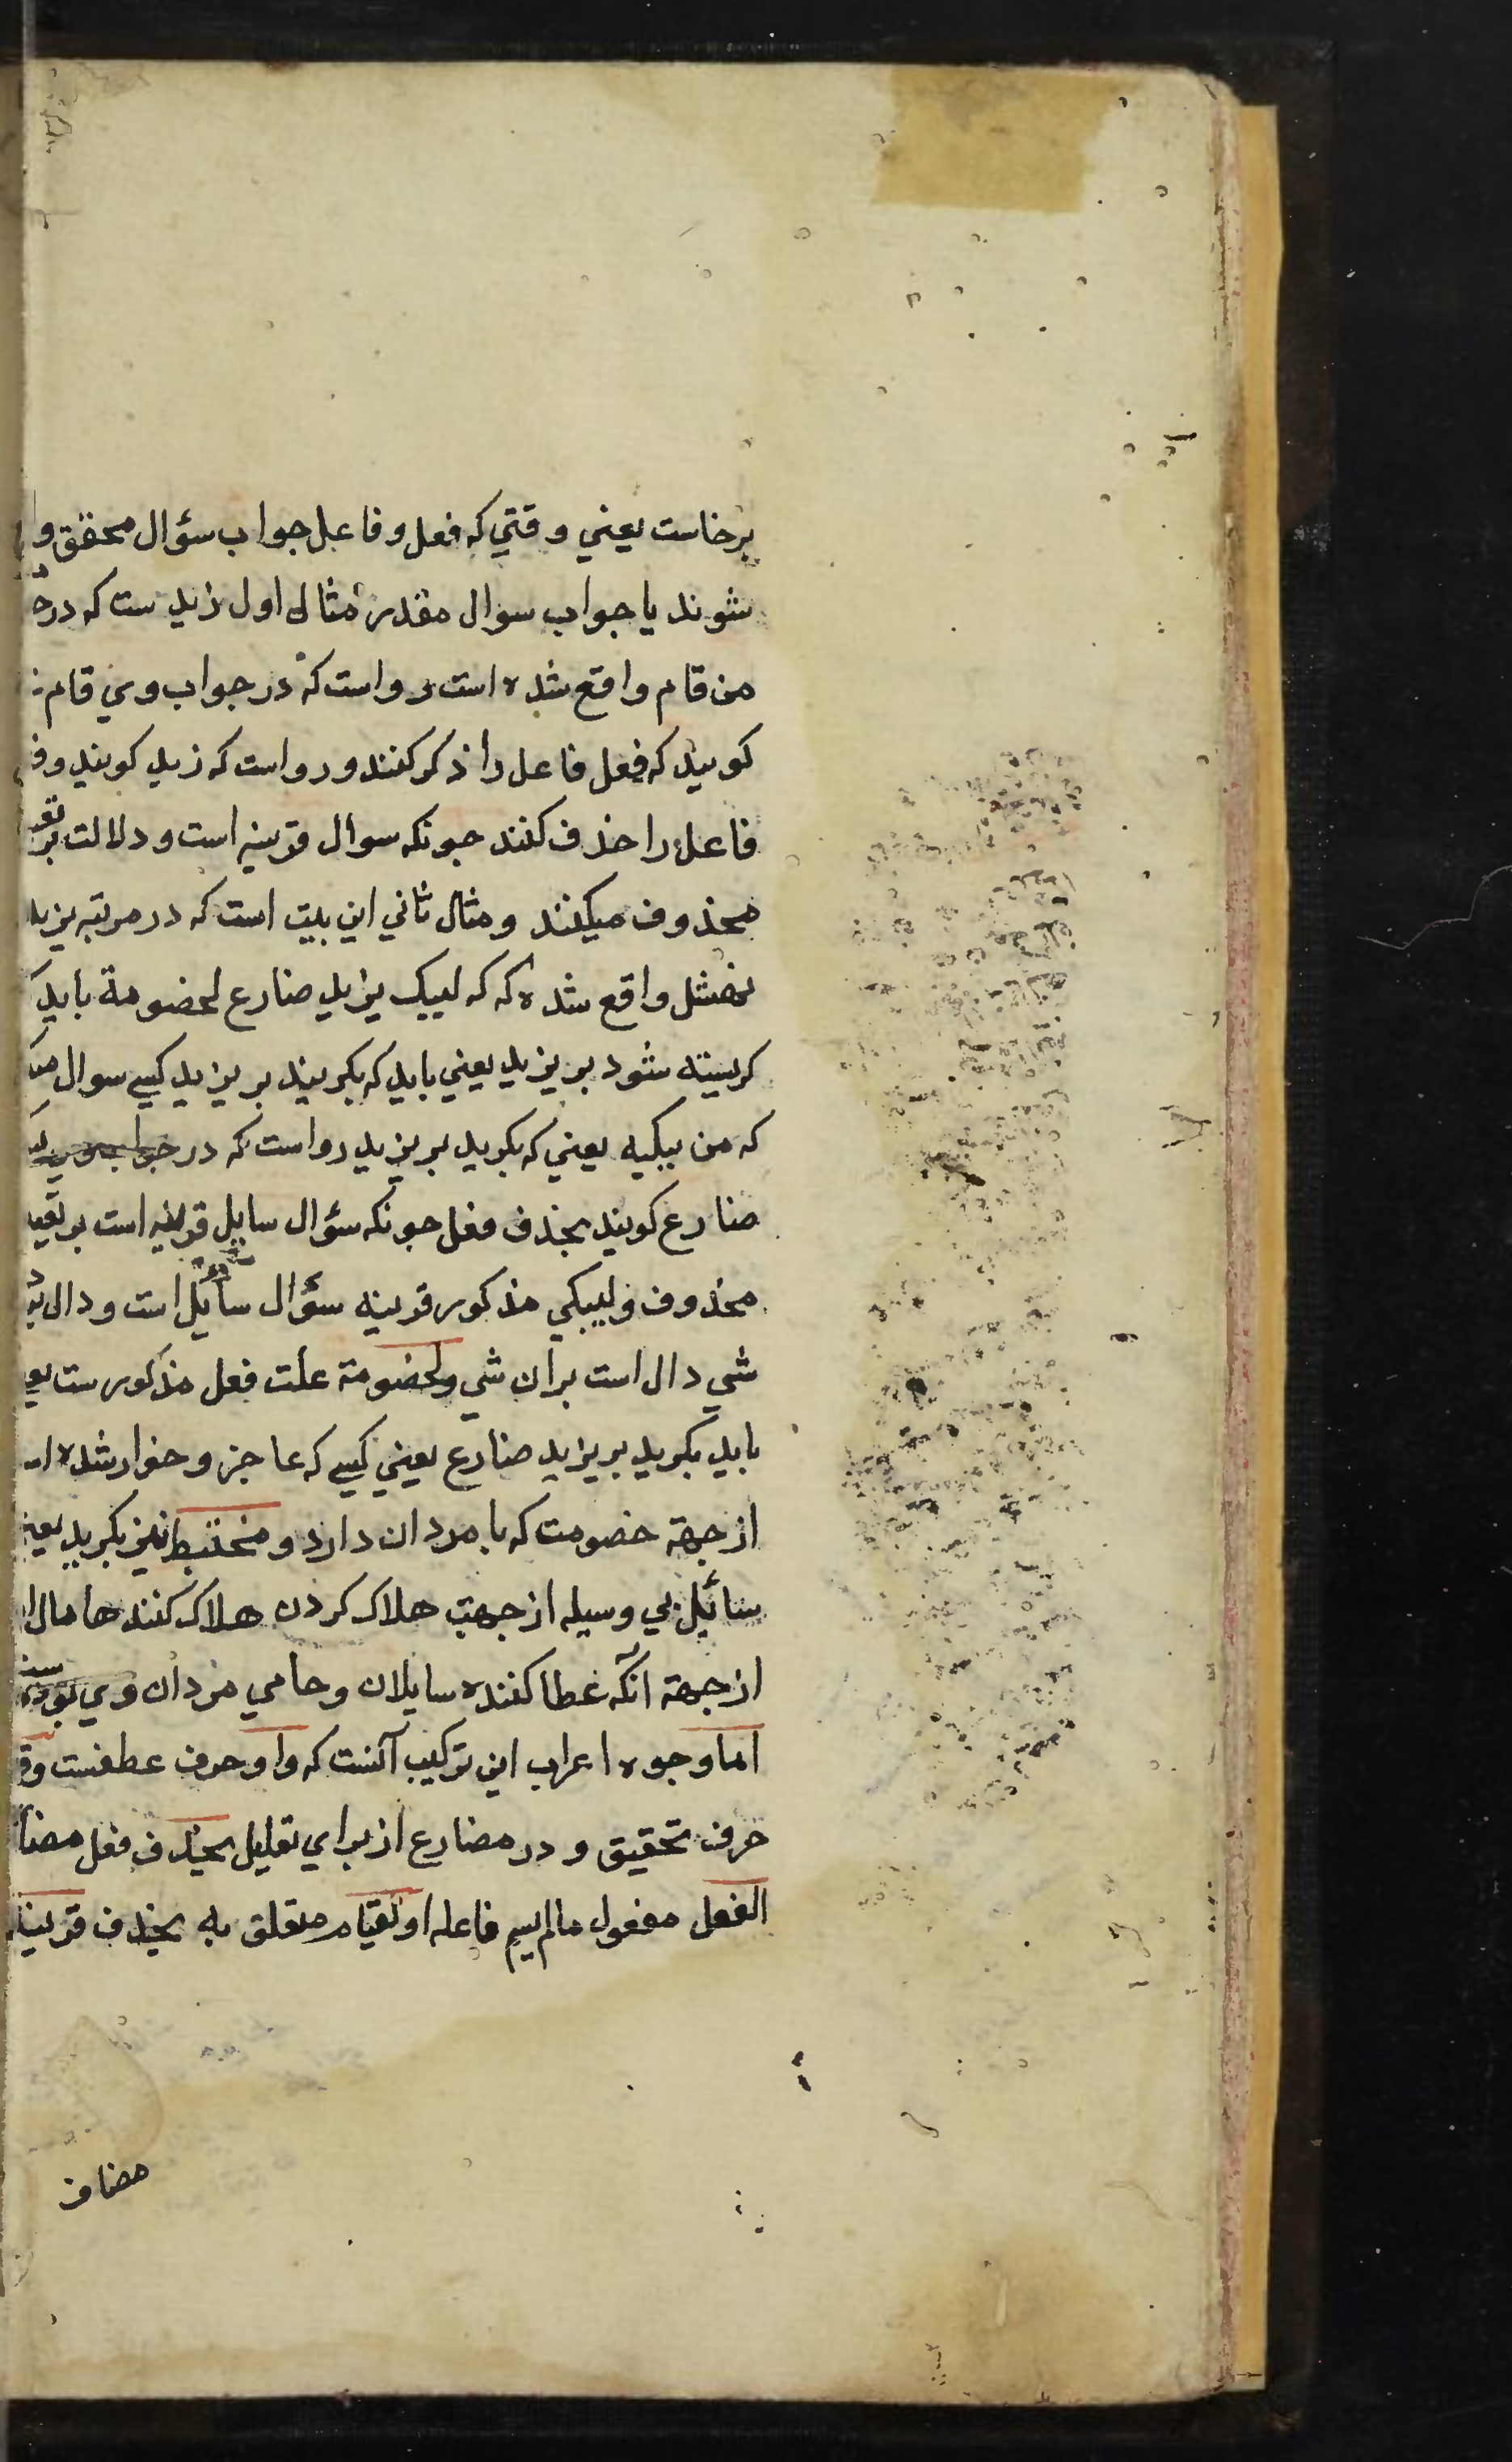 برخاست یعنی وقتی که فعل و فاعل جواب سؤال محقق وا
شوند یا جواب سوال مقدر مثال اول زید ست که در
من قام واقع شده است رواست که در جواب وی قام
کویند که فعل فاعل را ذکر کنند و رواست که زید کویند و
فاعل را حذف کنند جونکه سوال قرینه است و دلالت بر
محذوف میکنند و مثال ثانی این بیت است که در مرتبه یزید
نهشل واقع شده که که لیبک یزید ضارع لخضومة باید
کریسته شود بر یزید یعنی باید که بکریند بر یزید کسی سوال
که من یبکیه یعنی که بکرید بر یزید رواست که در جواب وی
ضارع کویند بحذف فعل جونکه سؤال سایل قرینه است بر
محذوف و لیبکی مذکور قرینه سؤال سائل است و دال
شی دال است بران شی و لخضومة علت فعل مذکورست
باید بکرید بر یزید ضارع یعنی کسی که عاجز و خوار شده
از جهة خصومت که با مردان دارد و مختبط نیز بکرید
سائل بی وسیله از جهت هلاک کردن هلاک کنندها مال
از جهة آنکه عطا کننده سایلان و حامی مردان وی
اما وجوه اعراب این ترکیب آنست که واو حرف عطفست و
حرف تحقیق و در مضارع از برای تقلیل یحذف فعل مضا
الفعل مفعول مالم یسم فاعله او لقیام متعلق به یحذف قرینه
مضاف